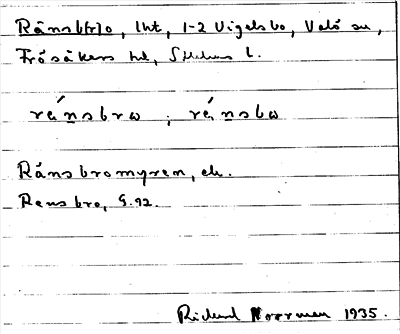 Rånsb(r)o, lht, 1-2 Vigelsbo, Valö sn,
Frösåkers hd, Sthlms l.
rånsbrω ; rånsbω
Rånsbromyren, ek.
Rensbro, G.92.
Rickard Norrman 1935.